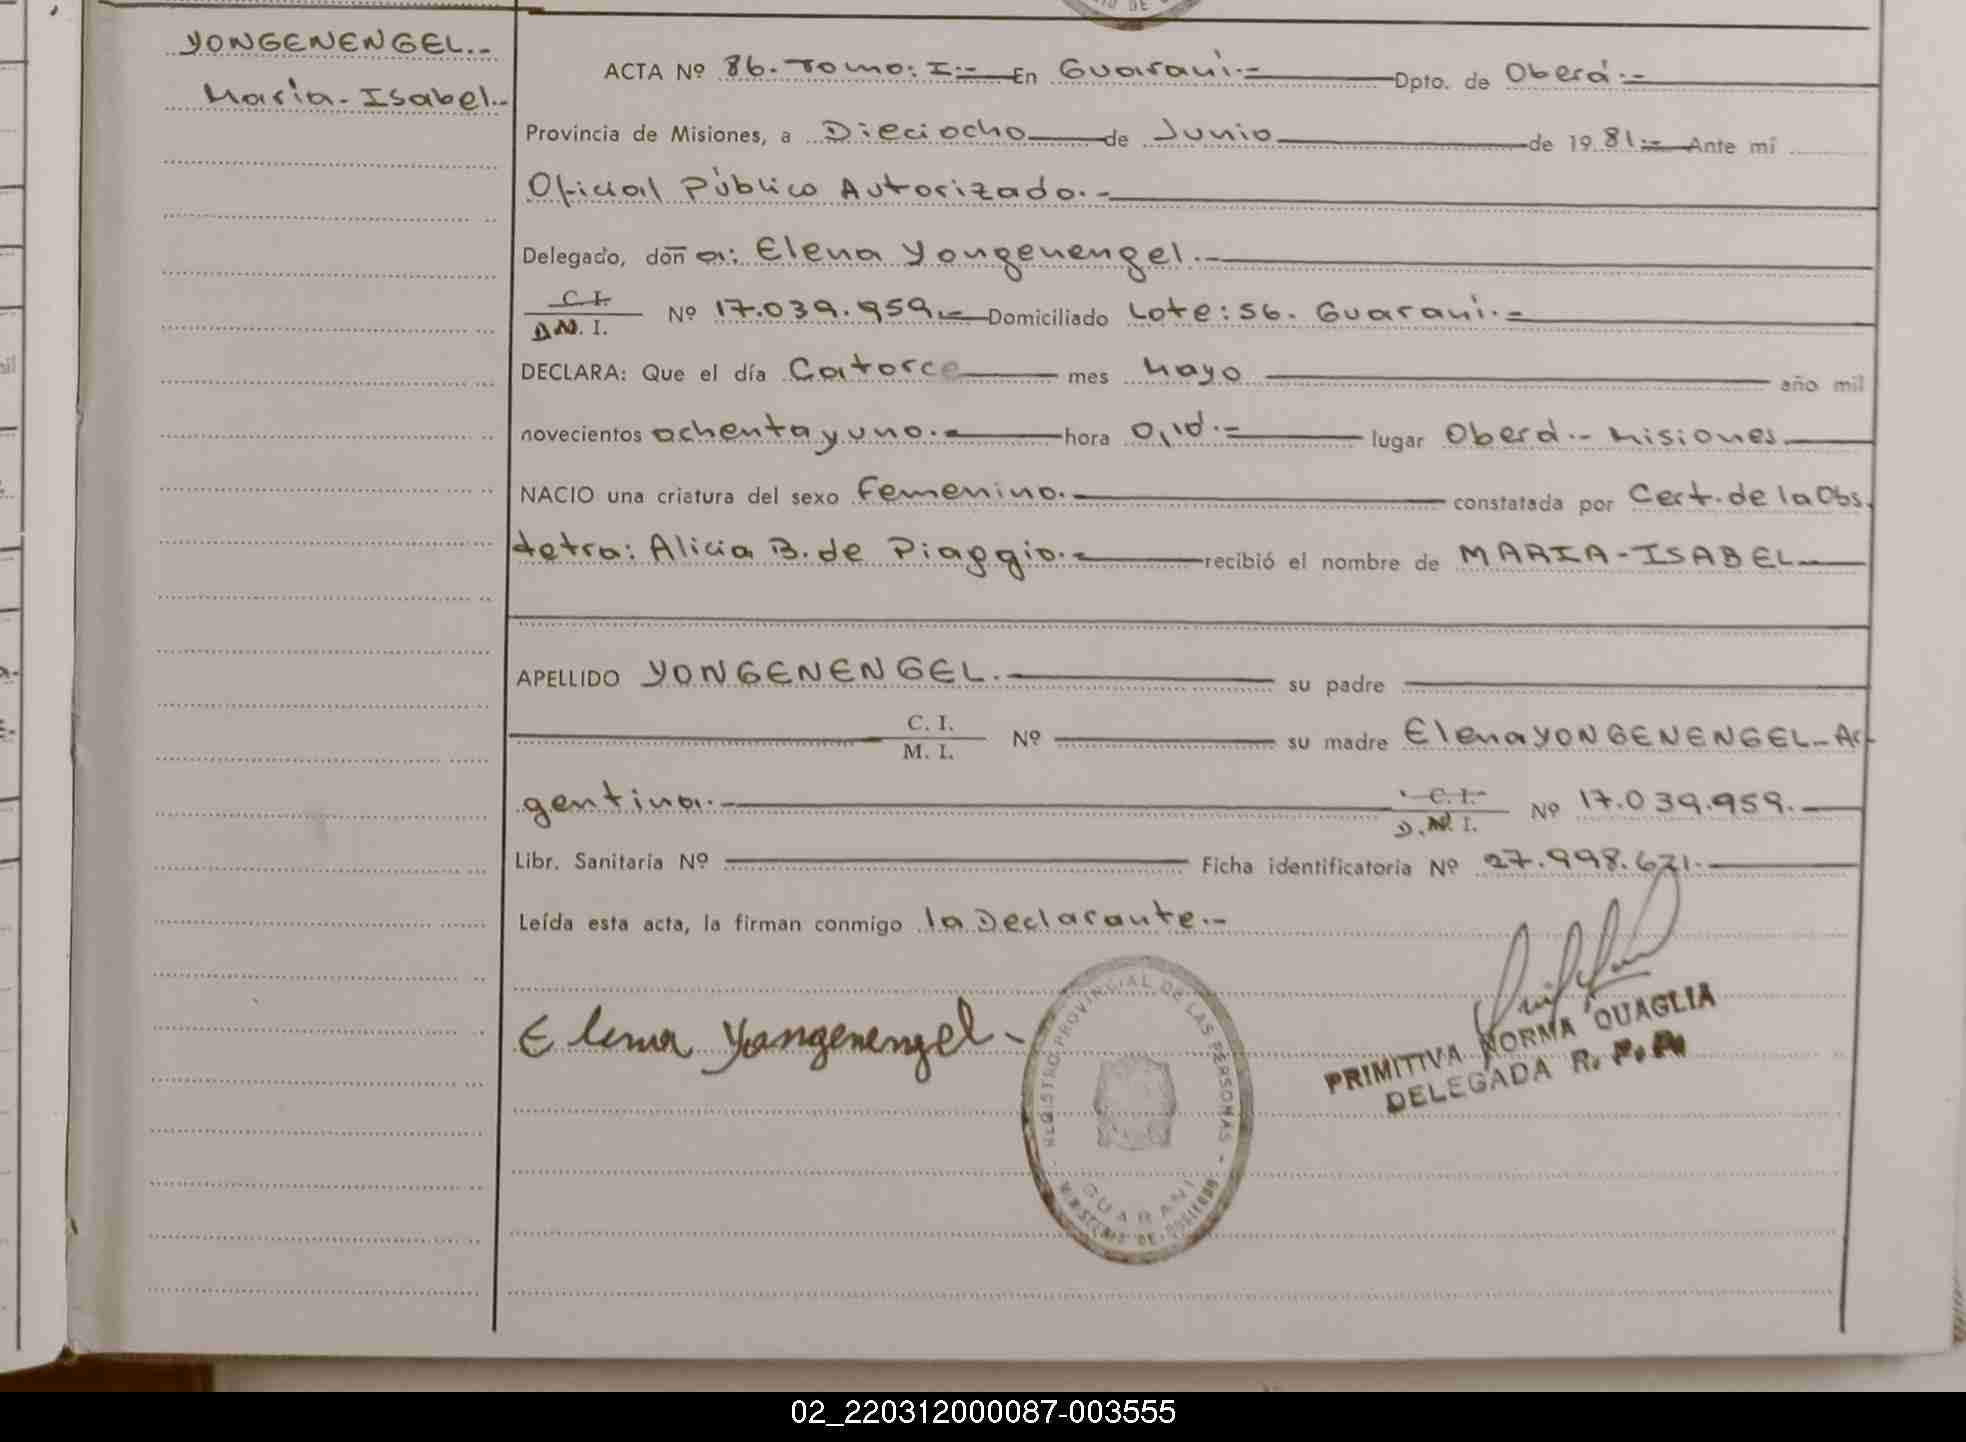 YONGENENGEL.-
Maria-Isabel.-
ACTA Nº 86.- Tomo: I.- En Guaraní.- Dpto. de Oberá.-
Provincia de Misiones, a Dieciocho de Junio de 1981.- Ante mí
Oficial Público Autorizado.-
Delegado, don̄ a: Elena Yongenengel.-
C. I.
D.N. I. Nº 17.039.959.- Domiciliado Lote: 56. Guaraní.-
DECLARA: Que el día Catorce mes Mayo año mil
novecientos ochenta y uno.- hora 0,10.- lugar Oberá.- Misiones
NACIO una criatura del sexo Femenino.- constatada por Cert. de la Obs.
tetra: Alicia B. de Piaggio.- recibió el nombre de MARIA-ISABEL
APELLIDO YONGENENGEL.- su padre
C. I.
M. I. Nº su madre Elena YONGENENGEL-Ar-
gentina.- C. I.
D.N. I. Nº 17.039.959.-
Libr. Sanitaria Nº Ficha identificatoria Nº 27.998.621.-
Leída esta acta, la firman conmigo la Declarante.-
Elena Yongenengel.-
REGISTRO PROVINCIAL DE LAS PERSONAS
GUARANI
MINISTERIO DE GOBIERNO
PRIMITIVA NORMA QUAGLIA
DELEGADA R. P. P.
02_220312000087-003555